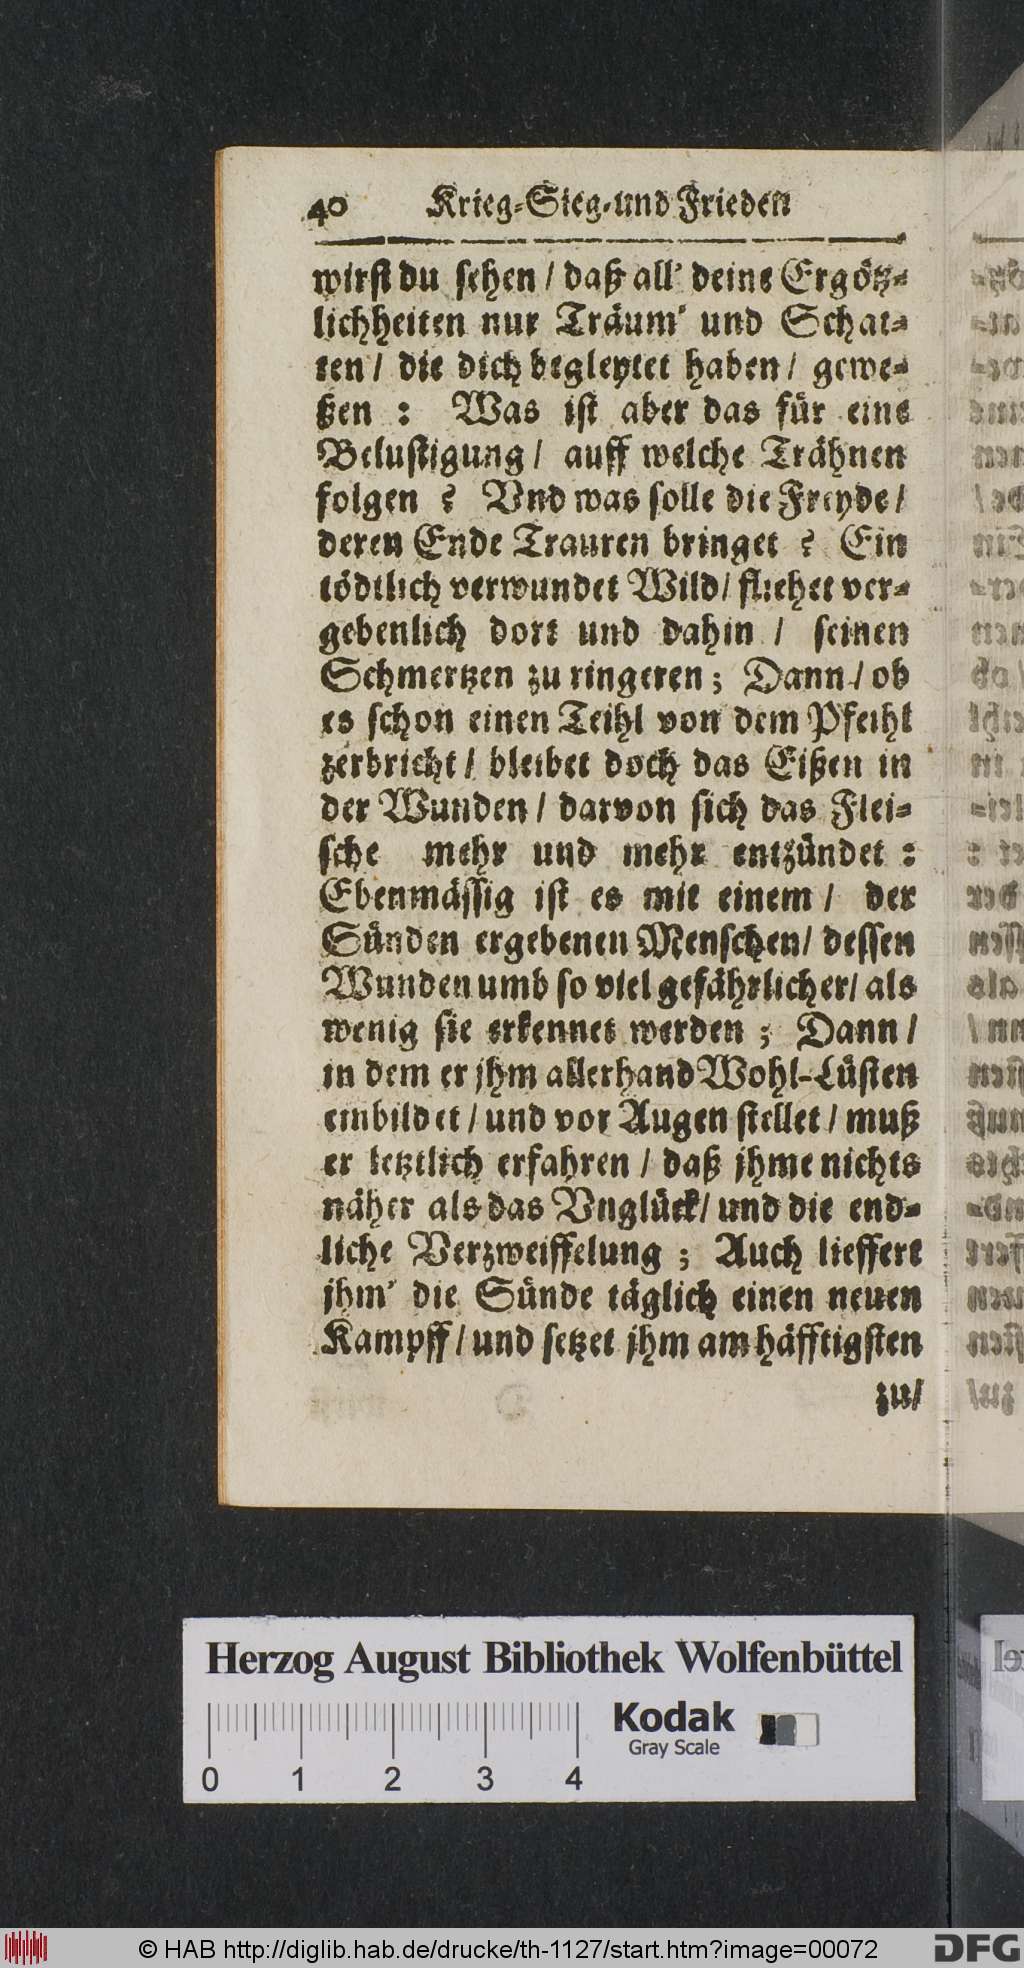 40 Krieg-Sieg-und Frieden
wirst du sehen / daß all' deine Ergötz-
lichheiten nur Träum' und Schat-
ten / die dich begleytet haben / gewe-
ßen : Was ist aber das für eine
Belustigung / auff welche Trähnen
folgen ? Vnd was solle die Freyde /
deren Ende Trauren bringet ? Ein
tödtlich verwundet Wild / fliehet ver-
gebenlich dort und dahin / seinen
Schmertzen zu ringeren ; Dann / ob
es schon einen Teihl von dem Pfeihl
zerbricht / bleibet doch das Eißen in
der Wunden / darvon sich das Flei-
sche mehr und mehr entzündet :
Ebenmässig ist es mit einem / der
Sünden ergebenen Menschen / dessen
Wunden umb so viel gefährlicher / als
wenig sie erkennet werden ; Dann /
in dem er jhm allerhand Wohl-Lüsten
einbildet / und vor Augen stellet / muß
er letztlich erfahren / daß jhme nichts
näher als das Vnglück / und die end-
liche Verzweiffelung ; Auch lieffert
jhm' die Sünde täglich einen neuen
Kampff / und setzet jhm am häfftigsten
zu /
Herzog August Bibliothek Wolfenbüttel
Kodak
Gray Scale
0 1 2 3 4
© HAB http://diglib.hab.de/drucke/th-1127/start.htm?image=00072
DFG